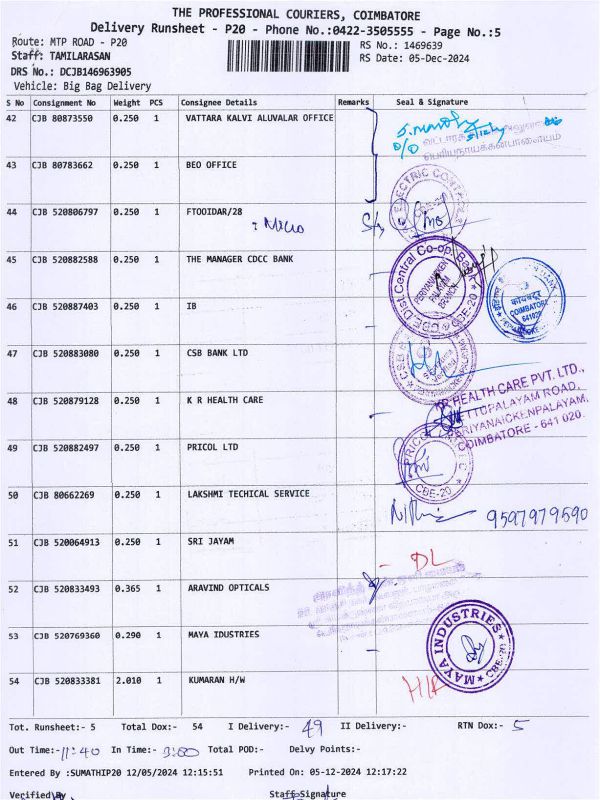 THE PROFESSIONAL COURIERS, COIMBATORE
Delivery Runsheet - P20 - Phone No.:0422-3505555 - Page No.:5
Route: MTP ROAD - P20
RS No.: 1469639
Staff: TAMILARASAN
RS Date: 05-Dec-2024
DRS No.: DCJB146963905
Vehicle: Big Bag Delivery
S No Consignment No Weight PCS Consignee Details Remarks Seal & Signature
42 CJB 80873550 0.250 1 VATTARA KALVI ALUVALAR OFFICE
43 CJB 80783662 0.250 1 BEO OFFICE
44 CJB 520806797 0.250 1 FTOOIDAR/28
45 CJB 520882588 0.250 1 THE MANAGER CDCC BANK
46 CJB 520887403 0.250 1 IB
47 CJB 520883080 0.250 1 CSB BANK LTD
48 CJB 520879128 0.250 1 K R HEALTH CARE
KR HEALTH CARE PVT. LTD.,
METTUPALAYAM ROAD,
PERIYANAICKENPALAYAM,
COIMBATORE - 641 020.
49 CJB 520882497 0.250 1 PRICOL LTD
CBE-20
50 CJB 80662269 0.250 1 LAKSHMI TECHICAL SERVICE
9597979590
51 CJB 520064913 0.250 1 SRI JAYAM
DL
52 CJB 520833493 0.365 1 ARAVIND OPTICALS
53 CJB 520769360 0.290 1 MAYA IDUSTRIES
MAYA INDUSTRIES CBE-20
54 CJB 520833381 2.010 1 KUMARAN H/W
Tot. Runsheet:- 5 Total Dox:- 54 I Delivery:- 49 II Delivery:- RTN Dox:- 5
Out Time:- 11:40 In Time:- Total POD:- Delvy Points:-
Entered By :SUMATHIP20 12/05/2024 12:15:51 Printed On: 05-12-2024 12:17:22
Verified By Staff Signature